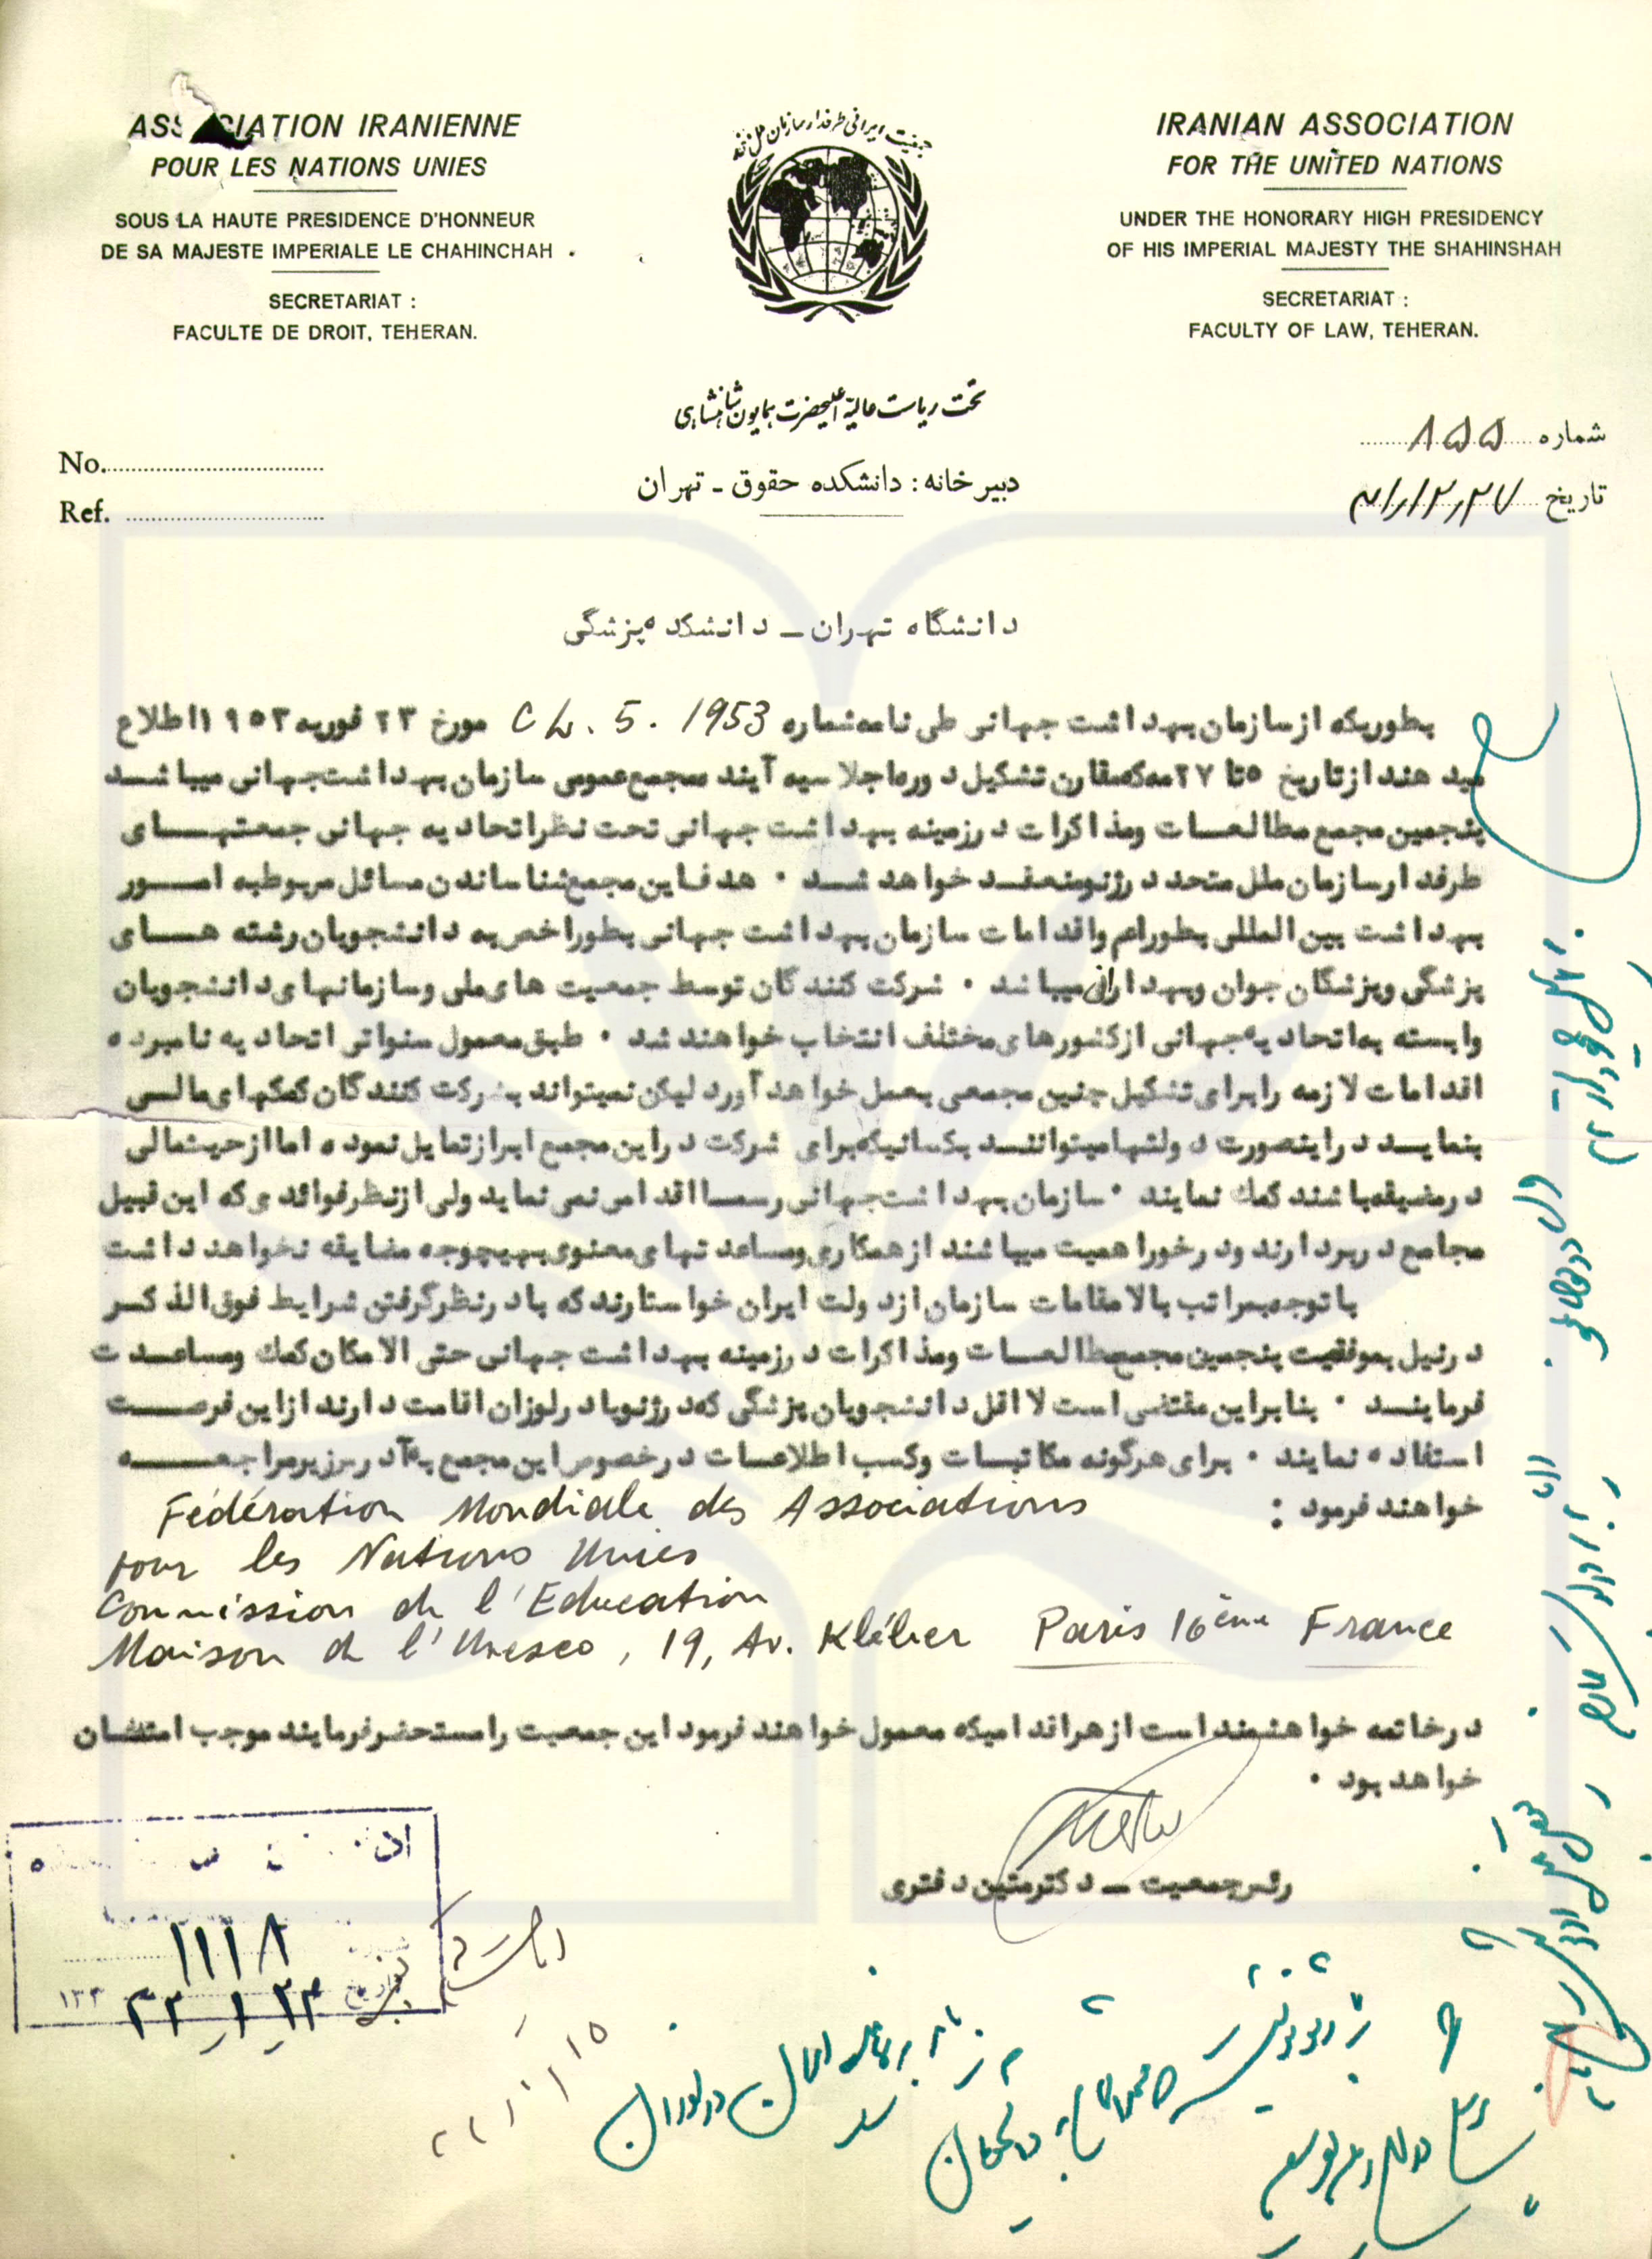 ASSOCIATION IRANIENNE
POUR LES NATIONS UNIES
SOUS LA HAUTE PRESIDENCE D'HONNEUR
DE SA MAJESTE IMPERIALE LE CHAHINCHAH .
SECRETARIAT :
FACULTE DE DROIT, TEHERAN.
جمعیت ایرانی طرفدار سازمان ملل متحد
IRANIAN ASSOCIATION
FOR THE UNITED NATIONS
UNDER THE HONORARY HIGH PRESIDENCY
OF HIS IMPERIAL MAJESTY THE SHAHINSHAH
SECRETARIAT :
FACULTY OF LAW, TEHERAN.
تحت ریاست عالیه اعلیحضرت همایون شاهنشاهی
دبیرخانه : دانشکده حقوق - تهران
No.
Ref.
شماره ۸۵۵
تاریخ ۳۱/۱۲/۲۷
دانشگاه تهران – دانشکده پزشگی
بطوریکه از سازمان بهداشت جهانی طی نامه شماره CL. 5. 1953 مورخ ۲۳ فوریه ۱۹۵۳ اطلاع
میدهند از تاریخ ۵ تا ۲۷ مه که مقارن تشکیل دوره اجلاسیه آینده مجمع عمومی سازمان بهداشت جهانی میباشد
پنجمین مجمع مطالعات ومذاکرات در زمینه بهداشت جهانی تحت نظر اتحادیه جهانی جمعتهای
طرفدار سازمان ملل متحد در ژنو منعقد خواهد شد ۰ هدف این مجمع شناساندن مسائل مربوط به امور
بهداشت بین المللی بطور اعم واقدامات سازمان بهداشت جهانی بطور اخص به دانشجویان رشته های
پزشگی وپزشگان جوان وبهداران میباشد ۰ شرکت کنندگان توسط جمعیت های ملی وسازمانهای دانشجویان
وابسته به اتحادیه جهانی از کشورهای مختلف انتخاب خواهند شد ۰ طبق معمول سنواتی اتحادیه نامبرده
اقدامات لازمه را برای تشکیل چنین مجمعی بعمل خواهد آورد لیکن نمیتواند بشرکت کنندگان کمکهای مالی
بنماید در اینصورت دولتها میتوانند بکسانیکه برای شرکت در این مجمع ابراز تمایل نموده اما از حیث مالی
در مضیقه باشند کمک نمایند ۰ سازمان بهداشت جهانی رسما اقدامی نمی نماید ولی از نظر فوائدی که این قبیل
مجامع در بردارند ودرخور اهمیت میباشند از همکاری ومساعدتهای معنوی بهیچوجه مضایقه نخواهد داشت
با توجه بمراتب بالا مقامات سازمان از دولت ایران خواستارند که با در نظر گرفتن شرایط فوق الذکر
در نیل بموفقیت پنجمین مجمع مطالعات ومذاکرات در زمینه بهداشت جهانی حتی الامکان کمک ومساعدت
فرمایند ۰ بنابراین مقتضی است لااقل دانشجویان پزشگی که در ژنو یا در لوزان اقامت دارند از این فرصت
استفاده نمایند ۰ برای هرگونه مکاتبات وکسب اطلاعات در خصوص این مجمع به آدرس زیر مراجعه
خواهند فرمود :
Fédération Mondiale des Associations
pour les Nations Unies
Commission de l'Education
Maison de l'Unesco, 19, Av. Kléber Paris 16ème France
در خاتمه خواهشمند است از هر اقدامیکه معمول خواهند فرمود این جمعیت را مستحضر فرمایند موجب امتنان
خواهد بود ۰
رئیس جمعیت – دکتر متین دفتری
۱۱۱۸
تاریخ